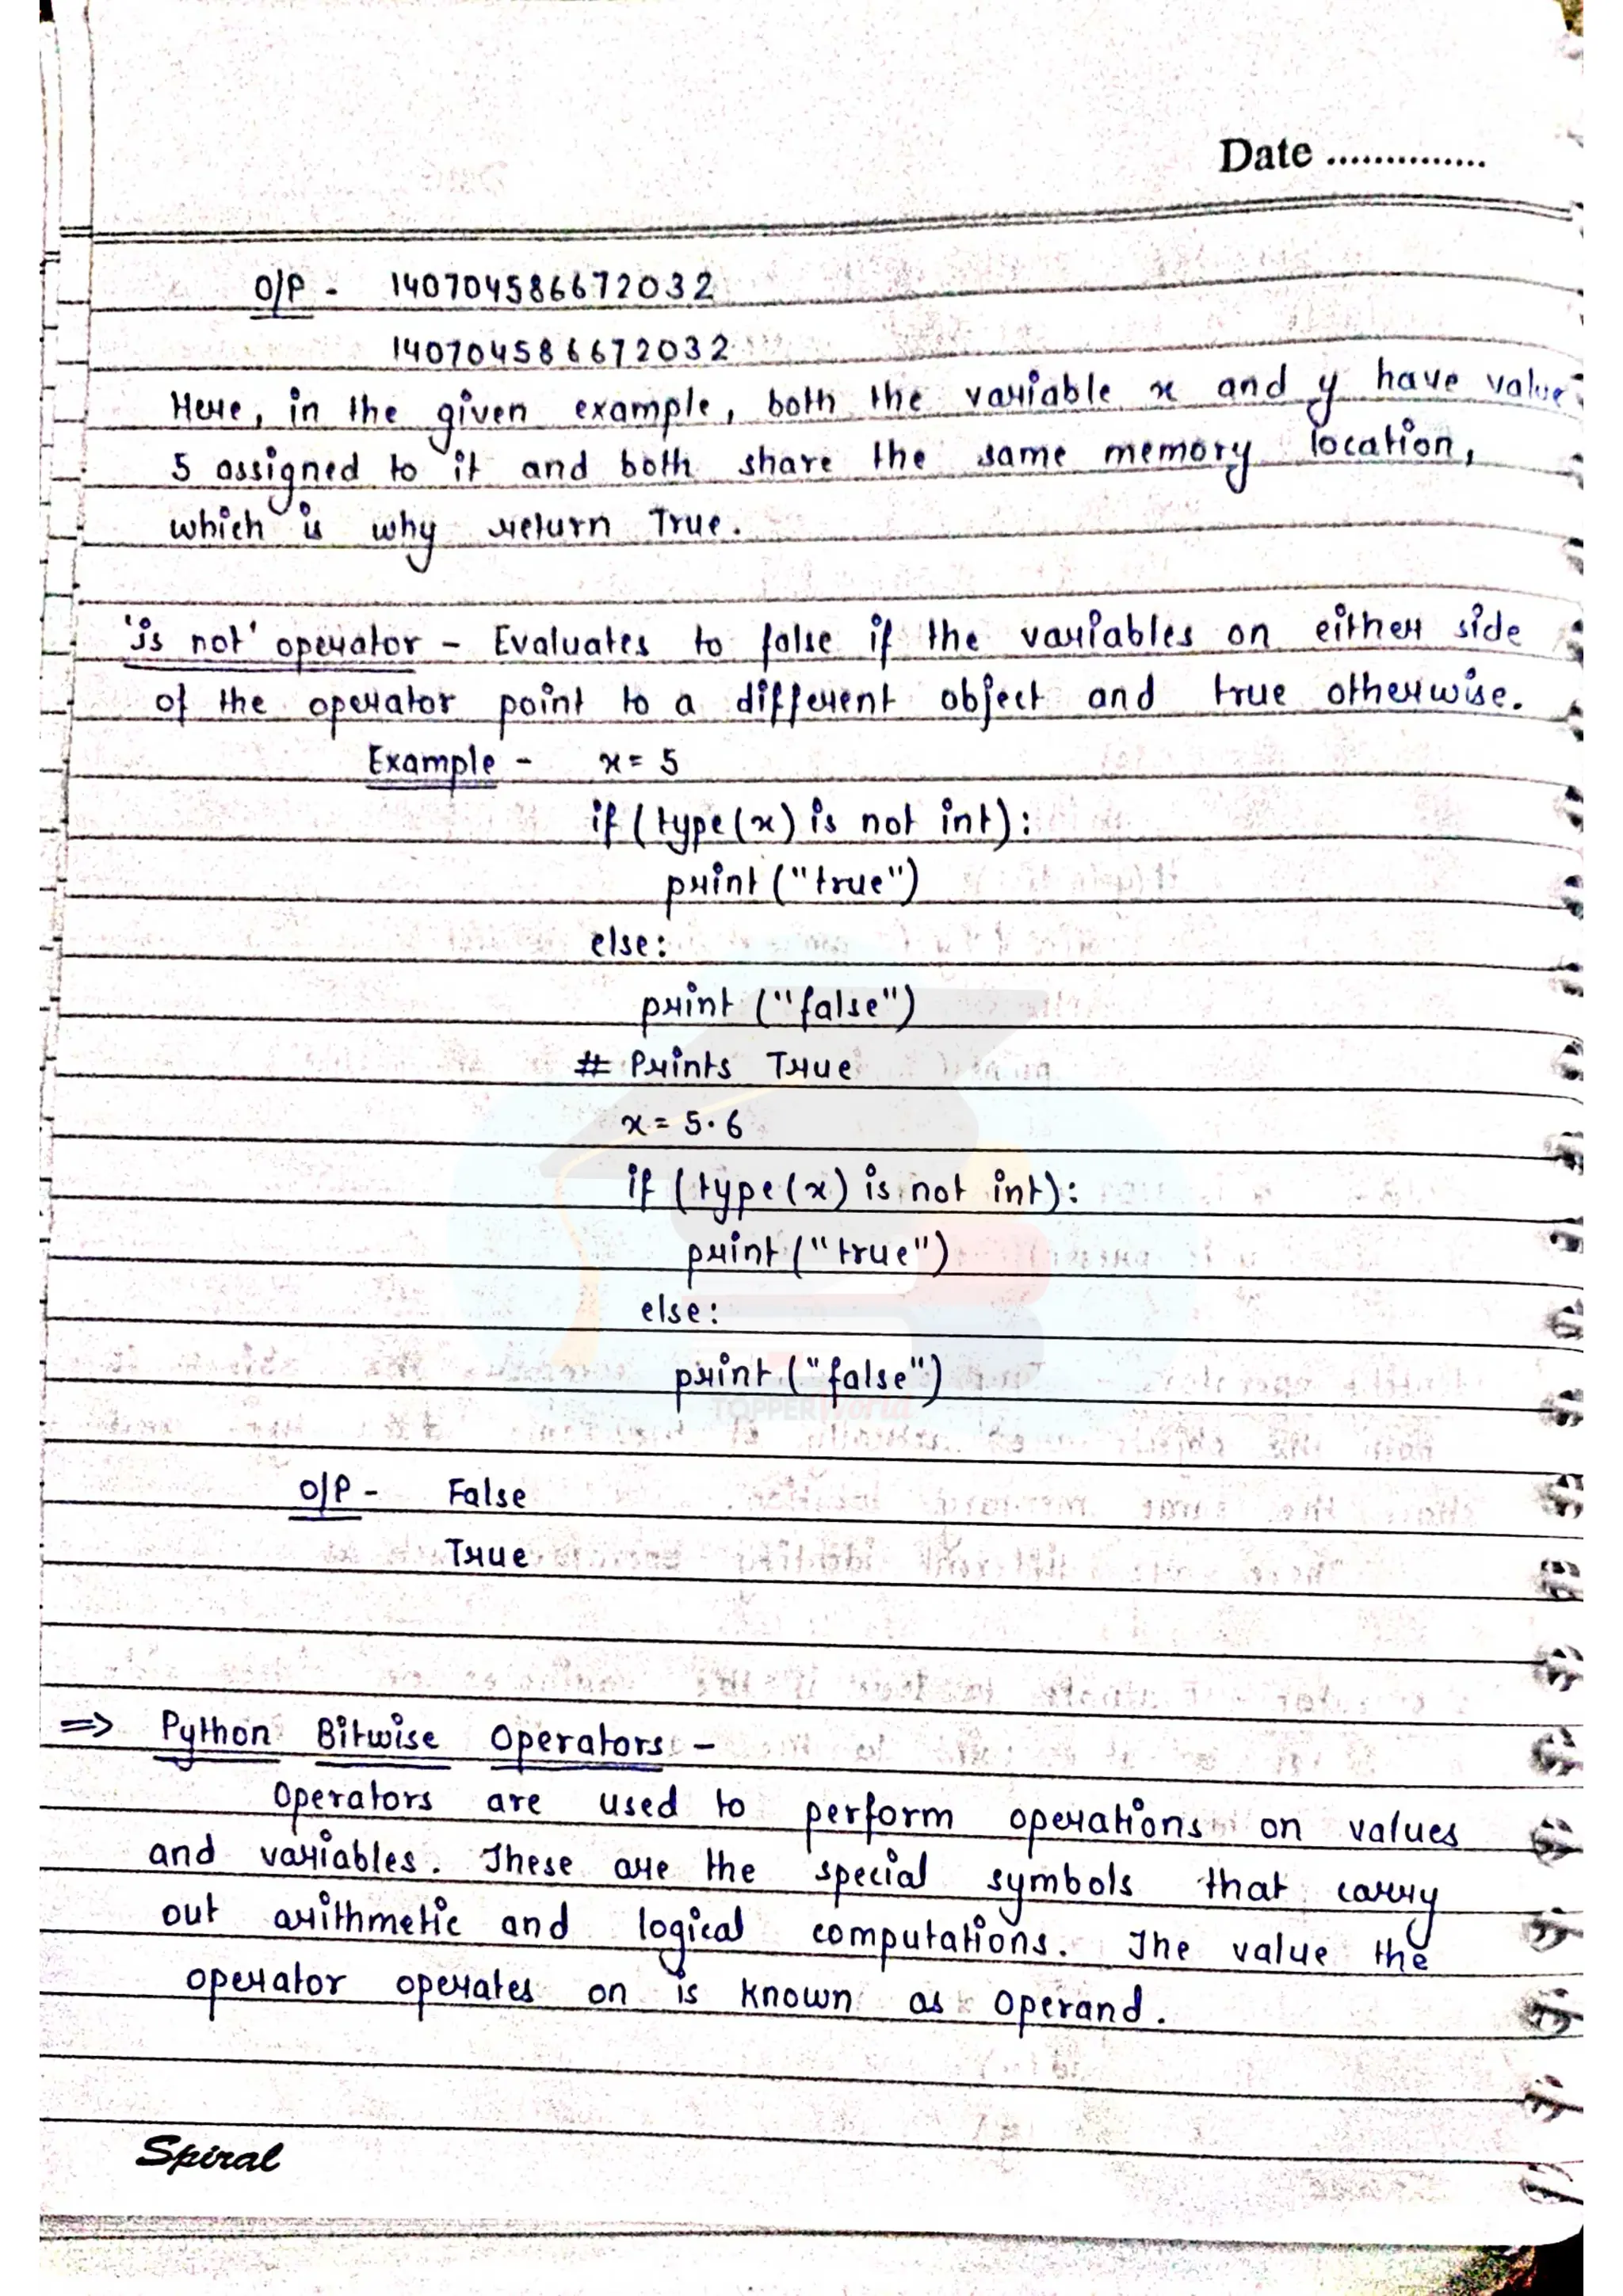 Date ..............
O/P - 140704586672032
140704586672032
Here, in the given example, both the variable x and y have value
5 assigned to it and both share the same memory location,
which is why return True.
'is not' operator - Evaluates to false if the variables on either side
of the operator point to a different object and true otherwise.
Example - x = 5
if (type(x) is not int):
print ("true")
else:
print ("false")
# Prints True
x = 5.6
if (type(x) is not int):
print ("true")
else:
print ("false")
TOPPERWorld
O/P - False
True
=> Python Bitwise Operators -
Operators are used to perform operations on values
and variables. These are the special symbols that carry
out arithmetic and logical computations. The value the
operator operates on is known as Operand.
Spiral